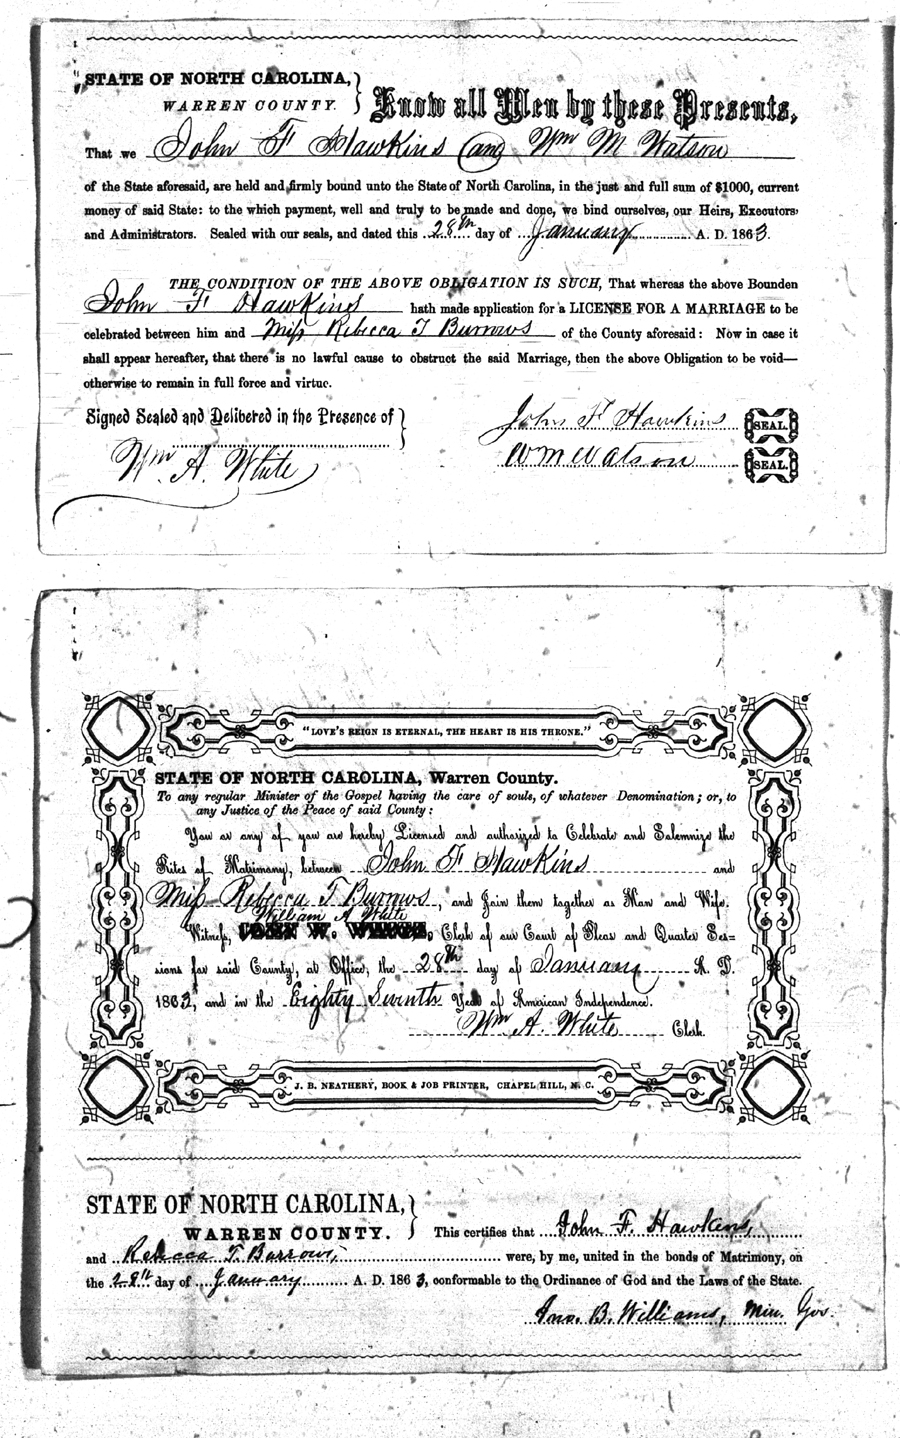 STATE OF NORTH CAROLINA,
WARREN COUNTY.
Know all Men by these Presents,
That we John F Hawkins and Wm M Watson
of the State aforesaid, are held and firmly bound unto the State of North Carolina, in the just and full sum of $1000, current
money of said State: to the which payment, well and truly to be made and done, we bind ourselves, our Heirs, Executors
and Administrators. Sealed with our seals, and dated this 28th day of January A. D. 1863.
THE CONDITION OF THE ABOVE OBLIGATION IS SUCH, That whereas the above Bounden
John F Hawkins hath made application for a LICENSE FOR A MARRIAGE to be
celebrated between him and Miss Rebecca T Burrows of the County aforesaid: Now in case it
shall appear hereafter, that there is no lawful cause to obstruct the said Marriage, then the above Obligation to be void—
otherwise to remain in full force and virtue.
Signed Sealed and Delibered in the Presence of
John F Hawkins SEAL.
Wm A. White
WM Watson SEAL.
"LOVE'S REIGN IS ETERNAL, THE HEART IS HIS THRONE."
STATE OF NORTH CAROLINA, Warren County.
To any regular Minister of the Gospel having the care of souls, of whatever Denomination; or, to
any Justice of the Peace of said County:
You or any of you are hereby Licensed and authorized to Celebrate and Solemnize the
Rites of Matrimony, between John F Hawkins and
Miss Rebecca T Burrows, and Join them together as Man and Wife.
William A White
Witness, JOHN W. WHITE, Clerk of our Court of Pleas and Quarter Ses=
sions for said County, at Office, the 28th day of January A. D.
1863, and in the Eighty Seventh Year of American Independence.
Wm A. White Clerk.
J. B. NEATHERY, BOOK & JOB PRINTER, CHAPEL HILL, N. C.
STATE OF NORTH CAROLINA,
WARREN COUNTY.
This certifies that John F. Hawkins,
and Rebecca T. Barrows, were, by me, united in the bonds of Matrimony, on
the 28th day of January A. D. 1863, conformable to the Ordinance of God and the Laws of the State.
Jno. B. Williams, Min. Gos.